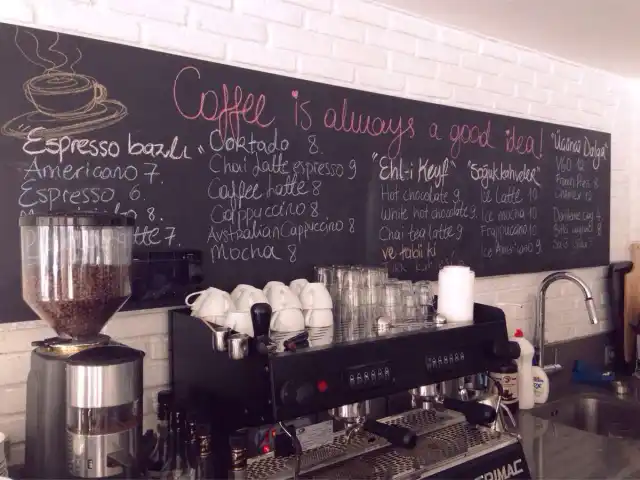 Coffee is always a good idea!
Espresso bazlı
Americano 7.
Espresso 6.
8.
7.
Cortado 8.
Chai latte espresso 9
Caffee latte 8
Cappuccino 8
Australian Cappuccino 8
Mocha 8
"Ehl-i Keyf"
Hot chocolate 9.
White hot chocolate 9.
Chai tea latte 9
ve tabii ki
"Soğuk kahveler"
Ice Latte 10
Ice mocha 10
Frappuccino 10
Ice Americano 9.
"Üçüncü Dalga"
V60 12
French Press 8
Chemex 12